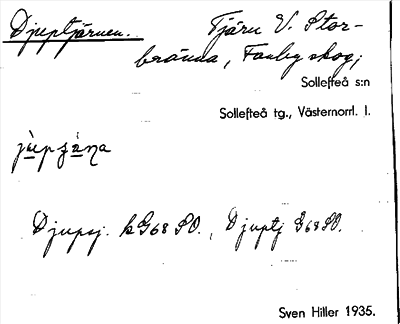 Djuptjärnen. Tjärn V. Stor-
bränna, Fanby skog;
Sollefteå s:n
Sollefteå tg., Västernorrl. l.
Djupsj. kG68 SO., Djuptj G68 SO.
Sven Hiller 1935.